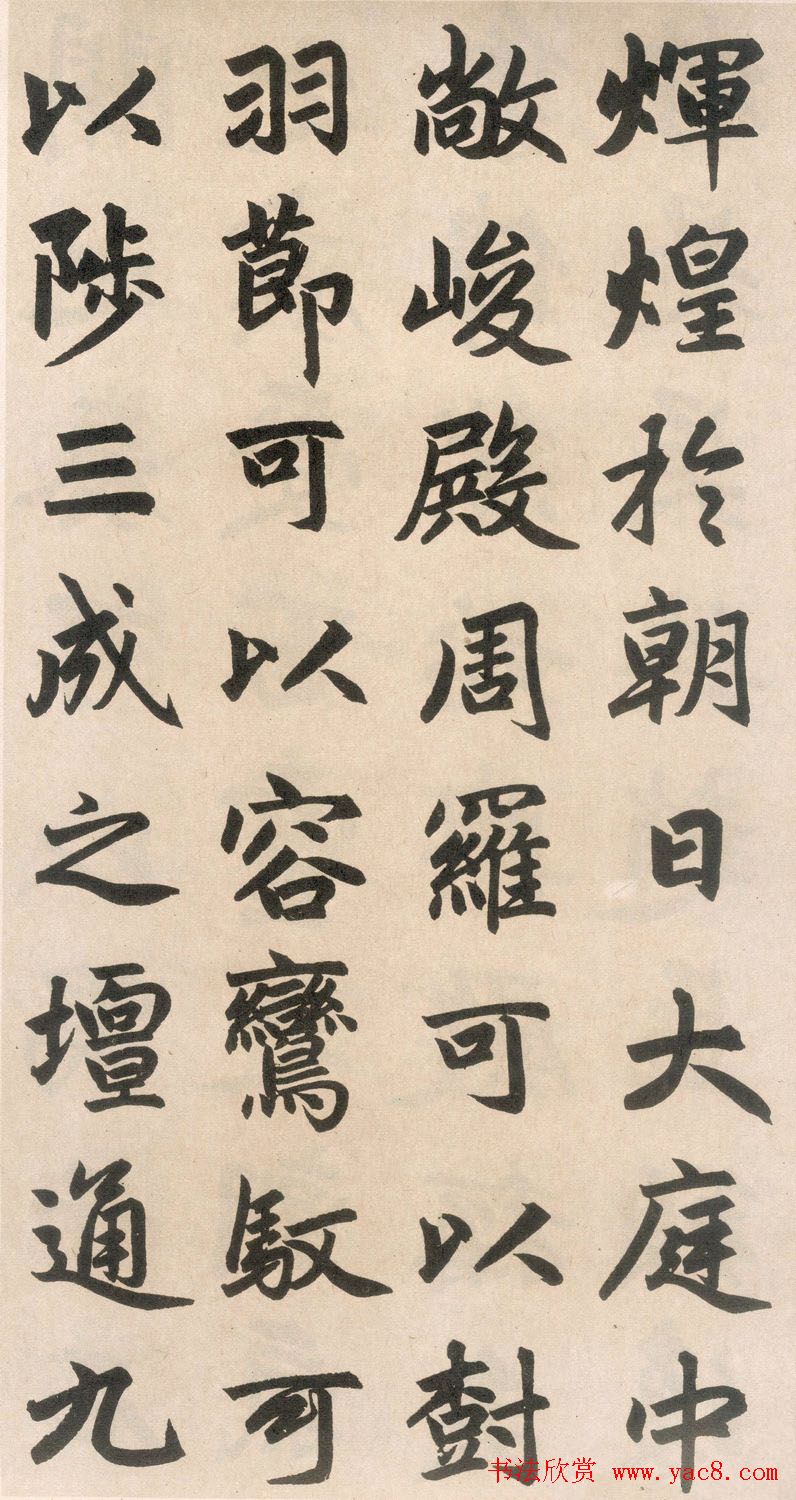 煇煌於朝日大庭中
敞峻殿周羅可以樹
羽莭可以容鸞馭可
以陟三成之壇通九
书法欣赏 www.yac8.com